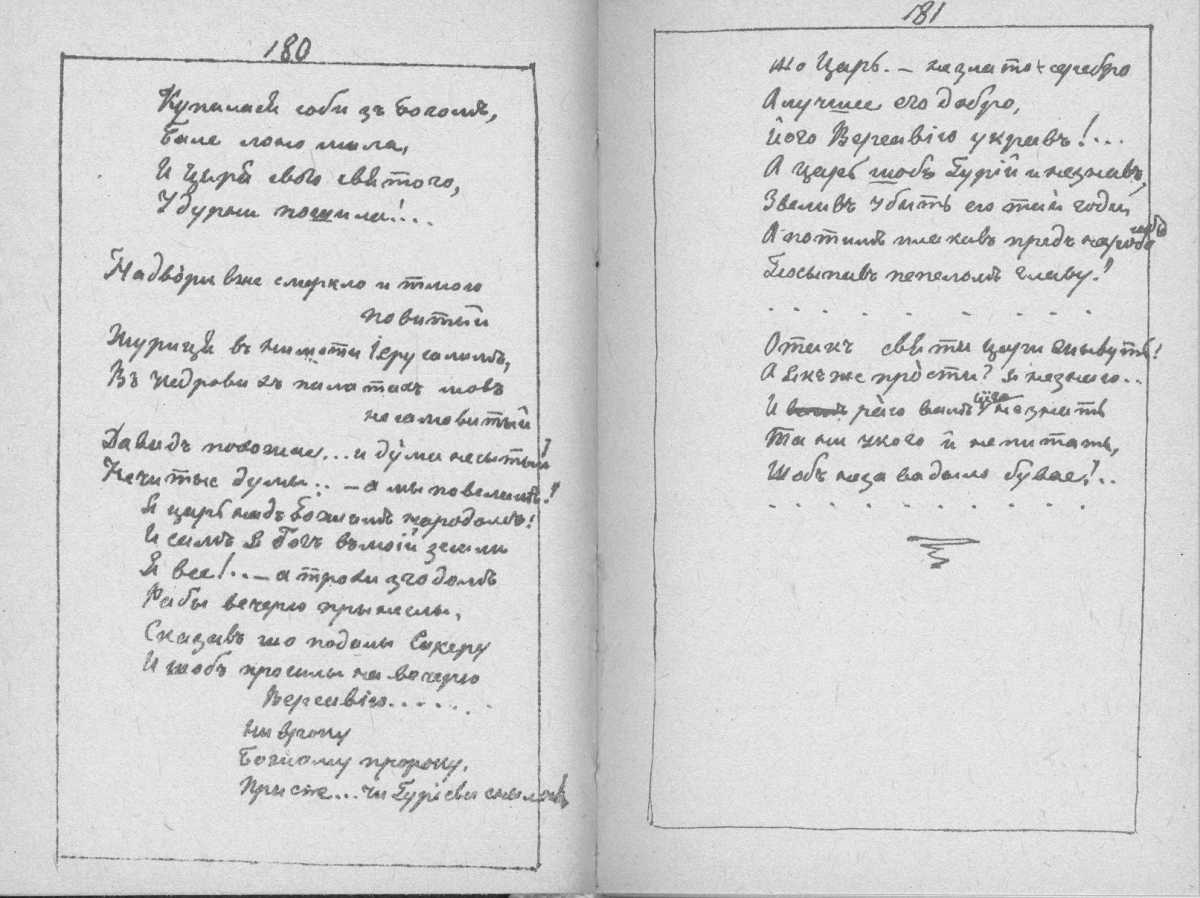 180
Купалася соби зъ Богомъ,
Бiле лоно мила,
И Царя свого святого,
У дурни пошила!..
Надвори вже смеркло и тмою
повитый
Журицця въ тимноти Iерусалимъ,
Въ кедровихъ палатахъ мовъ
несамовитый
Давидъ походжае... и думи несытый!
Нечитые думы.. — а мы повелимъ!
Я царь надъ Божимъ народомъ!
И самъ я Богъ въ моiй земли
Я все!.. — а трохи згодомъ
Рабы вечерю прынеслы,
Сказавъ шо подалы Сикеру
И шобъ просилы на вечерю
Версавiю......
Ни вроку
Божому пророку,
Прысте... чи Гурiеви снилось
181
шо Царь. — не злато-серебро
А лучшее его добро,
Його Версавiю укравъ!...
А царь шобъ Гурiй и незнавъ,
Звеливъ убыть его тай годи,
А потимъ плакавъ предъ народомъ
Посыпавъ пепеломъ главу!
. . . . . . . . . .
Отакъ святи цари жывуть!
А якъ же прости? я незнаю..
И раю вамъ цiго незнать
Та ни у кого й непитать,
Шобъ незавадыло бувае!..
. . . . . . . . . .